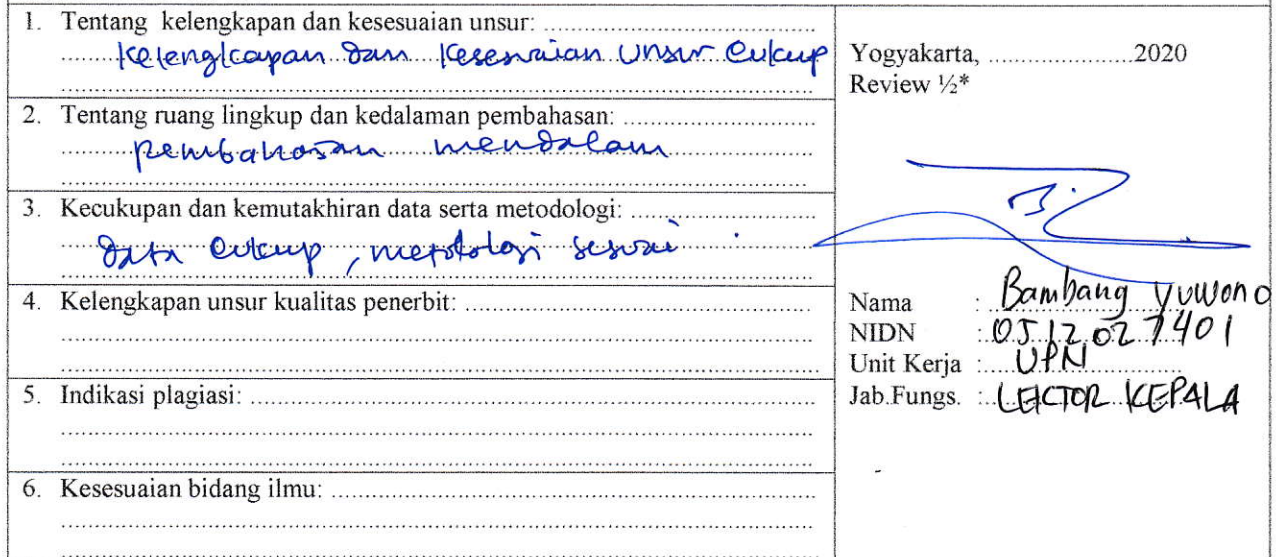 1. Tentang kelengkapan dan kesesuaian unsur:
Kelengkapan dan Kesesuaian Unsur Cukup
2. Tentang ruang lingkup dan kedalaman pembahasan:
pembahasan mendalam
3. Kecukupan dan kemutakhiran data serta metodologi:
Data cukup, metodologi sesuai
4. Kelengkapan unsur kualitas penerbit:
5. Indikasi plagiasi:
6. Kesesuaian bidang ilmu:
Yogyakarta, ......................2020
Review ½*
Nama : Bambang Yuwono
NIDN : 0512027401
Unit Kerja : UPN
Jab.Fungs. : LEKTOR KEPALA